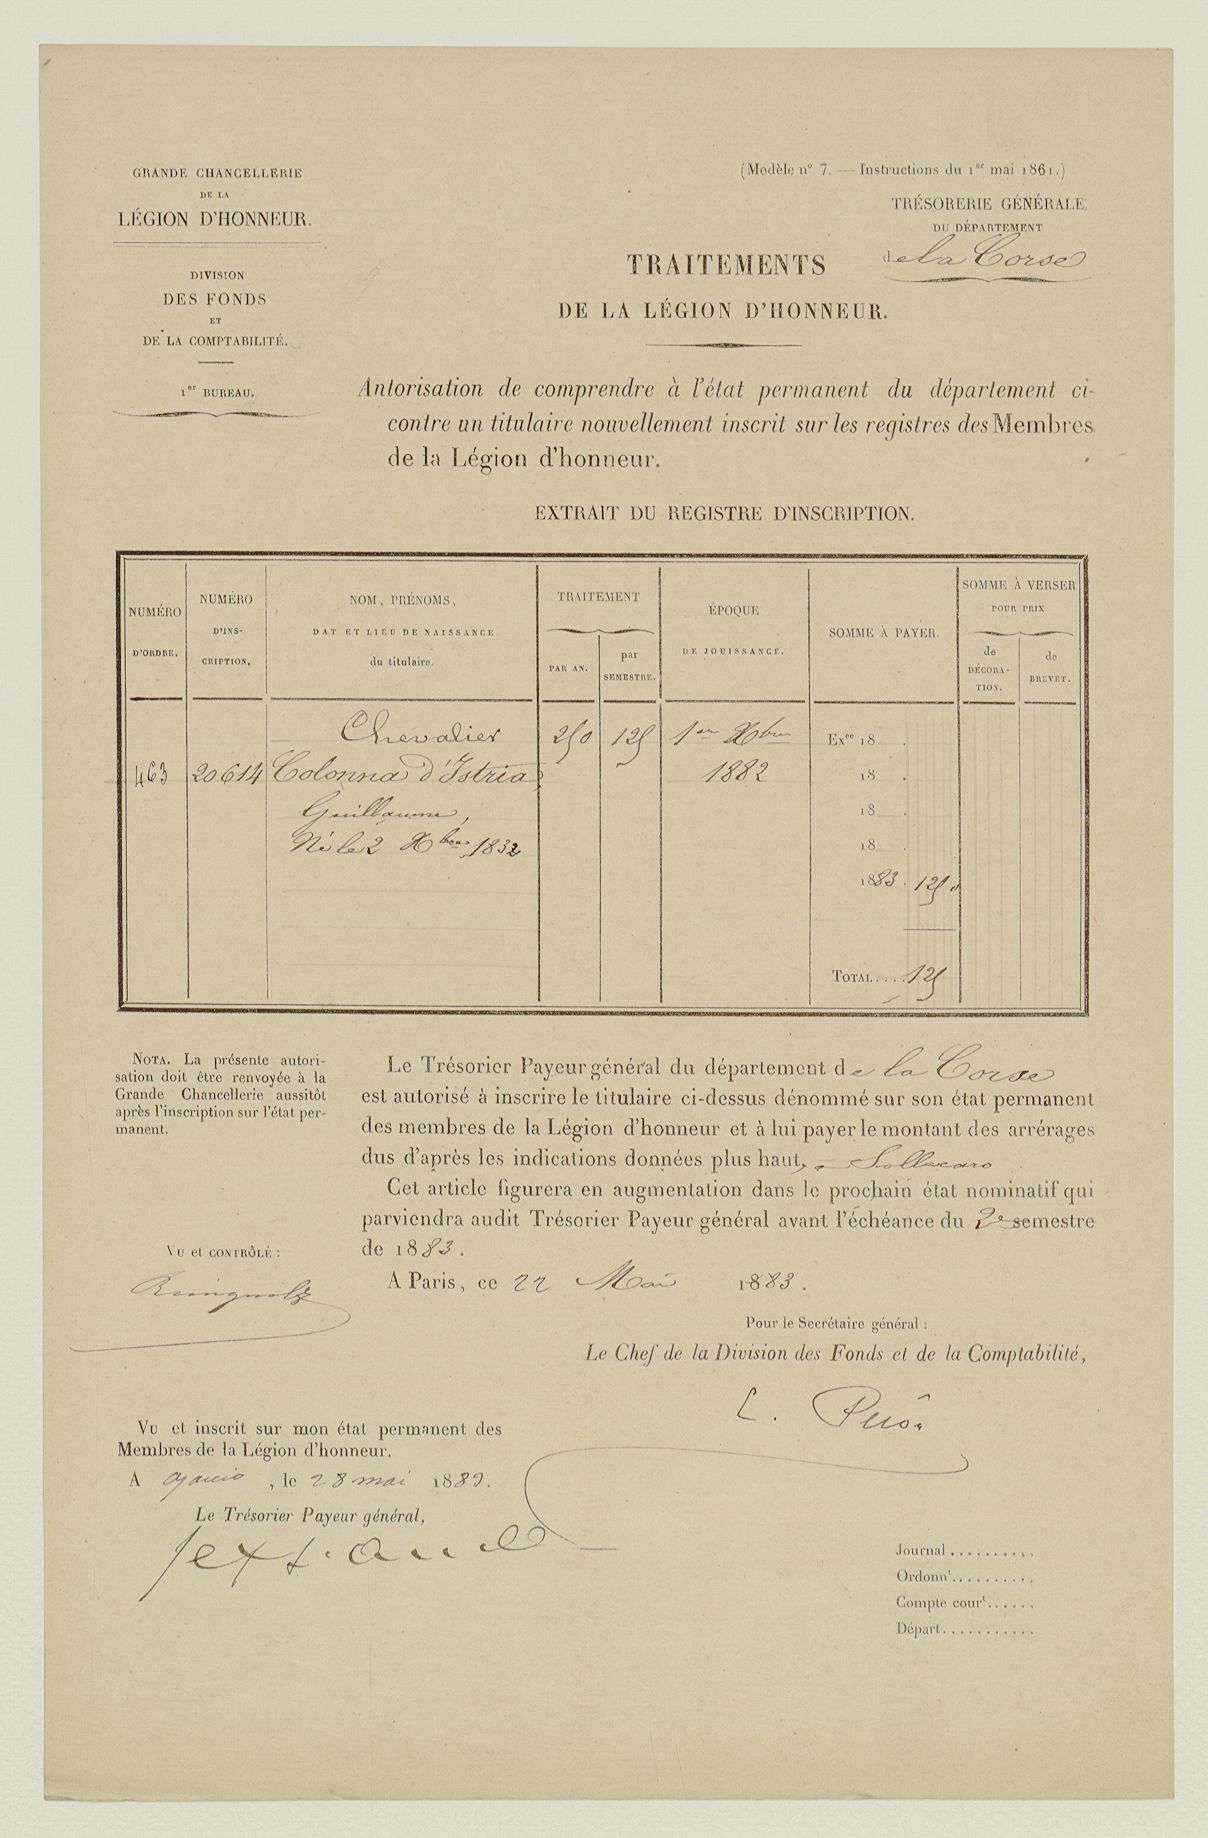 GRANDE CHANCELLERIE
DE LA
LÉGION D'HONNEUR.
DIVISION
DES FONDS
ET
DE LA COMPTABILITÉ.
1er BUREAU.
(Modèle n° 7. — Instructions du 1er mai 1861.)
TRÉSORERIE GÉNÉRALE
DU DÉPARTEMENT
de la Corse
TRAITEMENTS
DE LA LÉGION D'HONNEUR.
Autorisation de comprendre à l'état permanent du département ci-
contre un titulaire nouvellement inscrit sur les registres des Membres
de la Légion d'honneur.
EXTRAIT DU REGISTRE D'INSCRIPTION.
NUMÉRO
D'ORDRE.
NUMÉRO
D'INS-
CRIPTION.
NOM, PRÉNOMS,
DAT ET LIEU DE NAISSANCE
du titulaire.
TRAITEMENT
PAR AN.
par
SEMESTRE.
ÉPOQUE
DE JOUISSANCE.
SOMME À PAYER.
SOMME À VERSER
POUR PRIX
de
DÉCORA-
TION.
de
BREVET.
Chevalier 250 125 1er Xbre Exce 18 .
463 20614 Colonna d'Istria, 1882 18 .
Guillaume, 18 .
Né le 2 Xbre 1832 18 .
1883. 125 "
TOTAL.... 125
NOTA. La présente autori-
sation doit être renvoyée à la
Grande Chancellerie aussitôt
après l'inscription sur l'état per-
manent.
Le Trésorier Payeur général du département de la Corse
est autorisé à inscrire le titulaire ci-dessus dénommé sur son état permanent
des membres de la Légion d'honneur et à lui payer le montant des arrérages
dus d'après les indications données plus haut, Sollacaro
Cet article figurera en augmentation dans le prochain état nominatif qui
parviendra audit Trésorier Payeur général avant l'échéance du 2e semestre
de 1883.
A Paris, ce 22 Mai 1883.
VU et CONTRÔLÉ :
Pour le Secrétaire général :
Le Chef de la Division des Fonds et de la Comptabilité,
VU et inscrit sur mon état permanent des
Membres de la Légion d'honneur.
A ajaccio, le 28 mai 1883.
Le Trésorier Payeur général,
Journal..........
Ordonnt..........
Compte court......
Départ...........